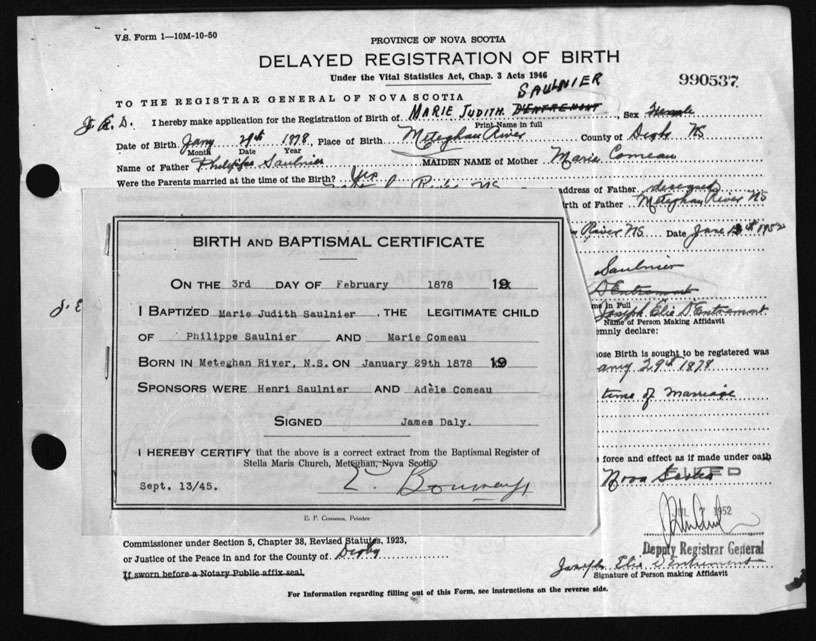 V.S. Form 1—10M-10-50
PROVINCE OF NOVA SCOTIA
DELAYED REGISTRATION OF BIRTH
Under the Vital Statistics Act, Chap. 3 Acts 1946
SAULNIER
990537
TO THE REGISTRAR GENERAL OF NOVA SCOTIA
J.E.D. I hereby make application for the Registration of Birth of MARIE JUDITH D'ENTREMONT, Sex Female
Print Name in full
Date of Birth Jany 29th 1878, Place of Birth Meteghan River County of Digby NS
Month Date Year
Name of Father Philippe Saulnier MAIDEN NAME of Mother Marie Comeau
Were the Parents married at the time of the Birth? Yes
address of Father deceased
rth of Father Meteghan River NS
River NS. Date June 1952
BIRTH AND BAPTISMAL CERTIFICATE
ON THE 3rd DAY OF February 1878 19
I BAPTIZED Marie Judith Saulnier , THE LEGITIMATE CHILD
OF Philippe Saulnier AND Marie Comeau
BORN IN Meteghan River, N.S. ON January 29th 1878 19
SPONSORS WERE Henri Saulnier AND Adèle Comeau
SIGNED James Daly.
I HEREBY CERTIFY that the above is a correct extract from the Baptismal Register of
Stella Maris Church, Meteghan, Nova Scotia
Sept. 13/45.
E. P. Comeau, Printer
J. E
Saulnier
D'Entremont
me in Full
Joseph Elie D'Entremont
Name of Person Making Affidavit
emnly declare:
ose Birth is sought to be registered was
any 29th 1878
time of marriage
force and effect as if made under oath
Nova Scotia
FILED
1952
Deputy Registrar General
Commissioner under Section 5, Chapter 38, Revised Statutes, 1923,
or Justice of the Peace in and for the County of Digby
If sworn before a Notary Public affix seal.
Joseph Elie D'Entremont
Signature of Person making Affidavit
For Information regarding filling out of this Form, see instructions on the reverse side.